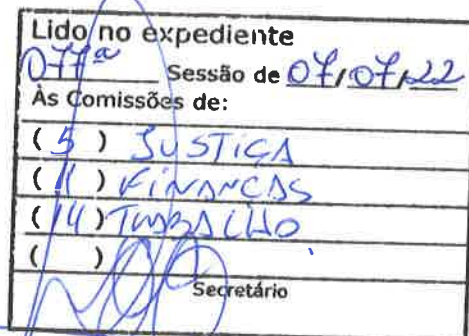 Lido no expediente
077ª Sessão de 07/07/22
Às Comissões de:
( 5 ) JUSTIÇA
( 11 ) FINANÇAS
( 14 ) TRABALHO
( )
Secretário